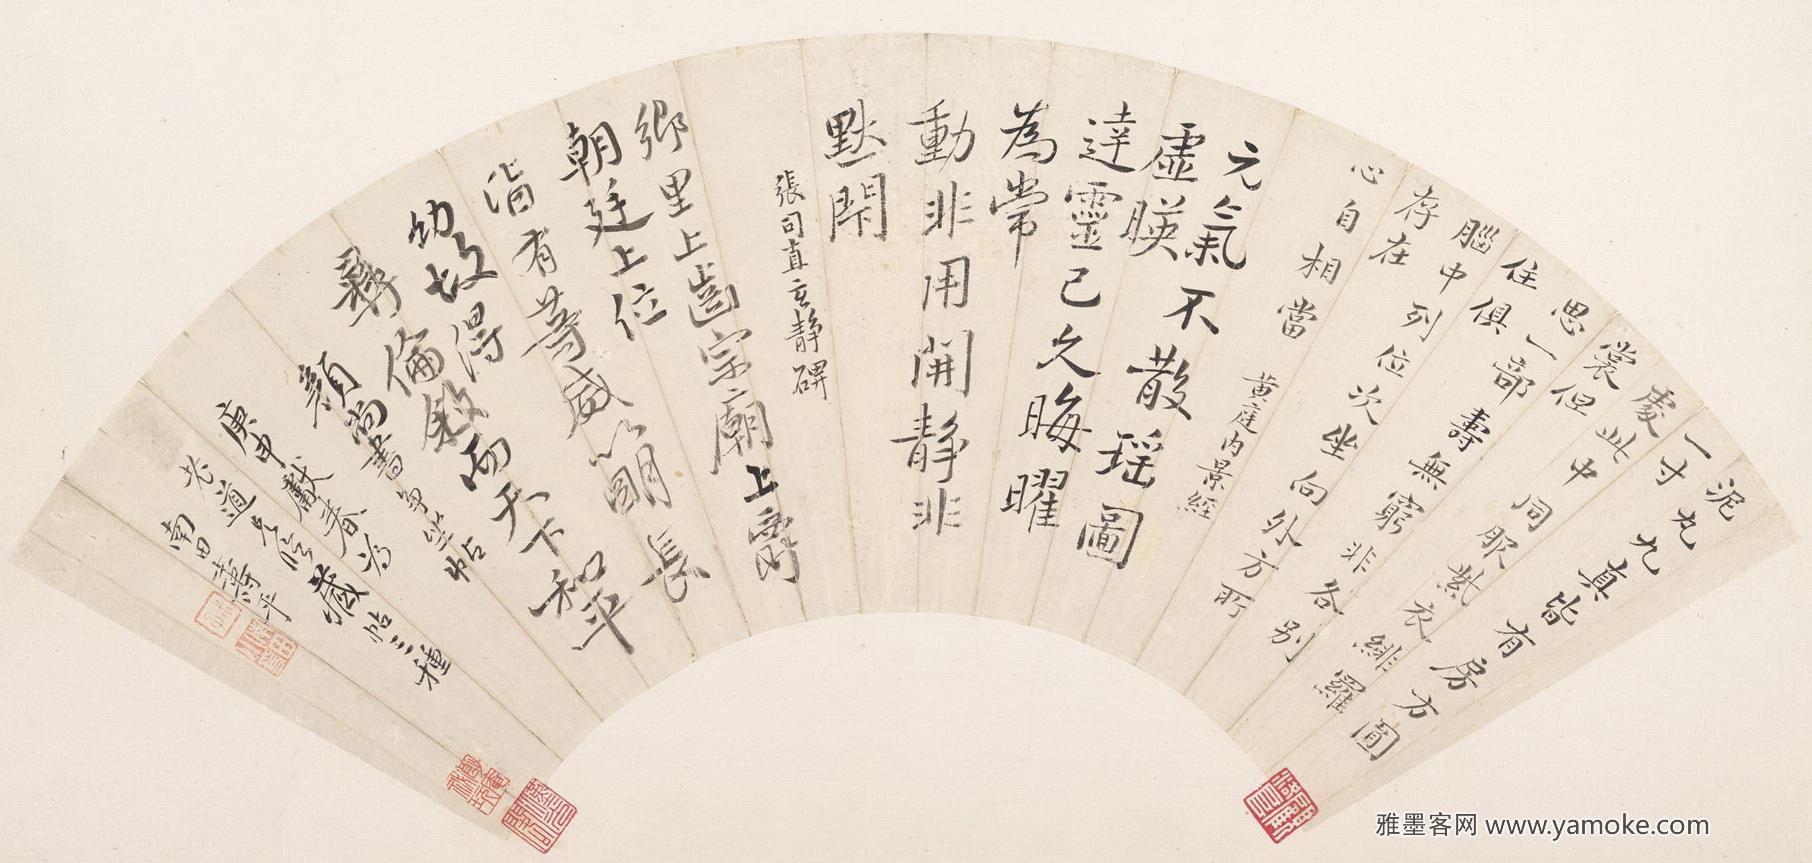 泥丸九真皆有房方圓
一寸
處此中同服紫衣緋羅
裳但
思一部壽無窮非各別
住俱
腦中列位次坐向外方所
存在
心自相當
黃庭內景經
元氣
虛暎不散瑤圖
達靈已久晦曜
為常
動非用開靜非
默閇
張司直玄靜碑
鄉里上齒宗廟上爵
朝廷上位
皆有等威以明長
幼故得
彝倫敘而天下和平
顏尚書爭坐帖
庚申獻春為
老道兄臨藏帖三種
南田壽平
雅墨客网 www.yamoke.com